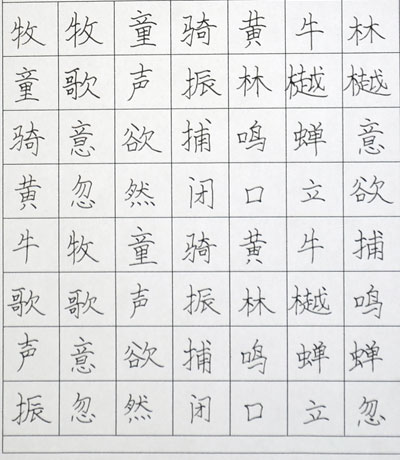 牧牧童骑黄牛林
童歌声振林樾樾
骑意欲捕鸣蝉意
黄忽然闭口立欲
牛牧童骑黄牛捕
歌歌声振林樾鸣
声意欲捕鸣蝉蝉
振忽然闭口立忽